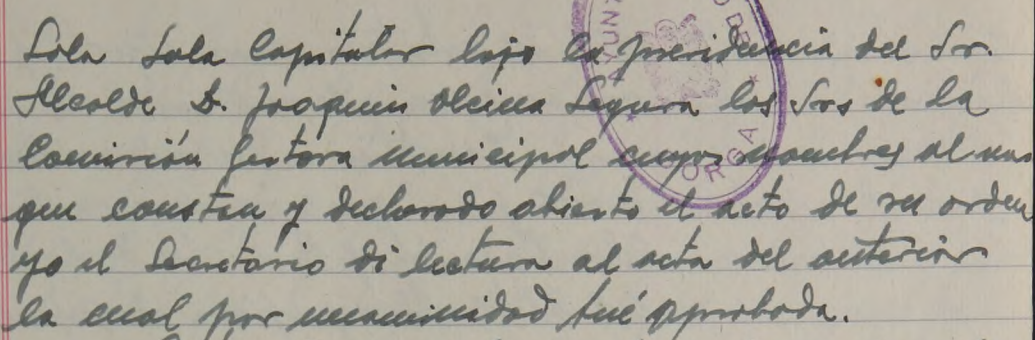 Sola Sala Capitular bajo la presidencia del Sr.
Alcalde D. Joaquin Olcina Segura los Srs de la
Comisión Gestora Municipal cuyos nombres al mar
gen constan y declarado abierto el acto de su orden
yo el Secretario di lectura al acta del anterior
la cual por unanimidad fué aprobada.
AYUN
ORGA